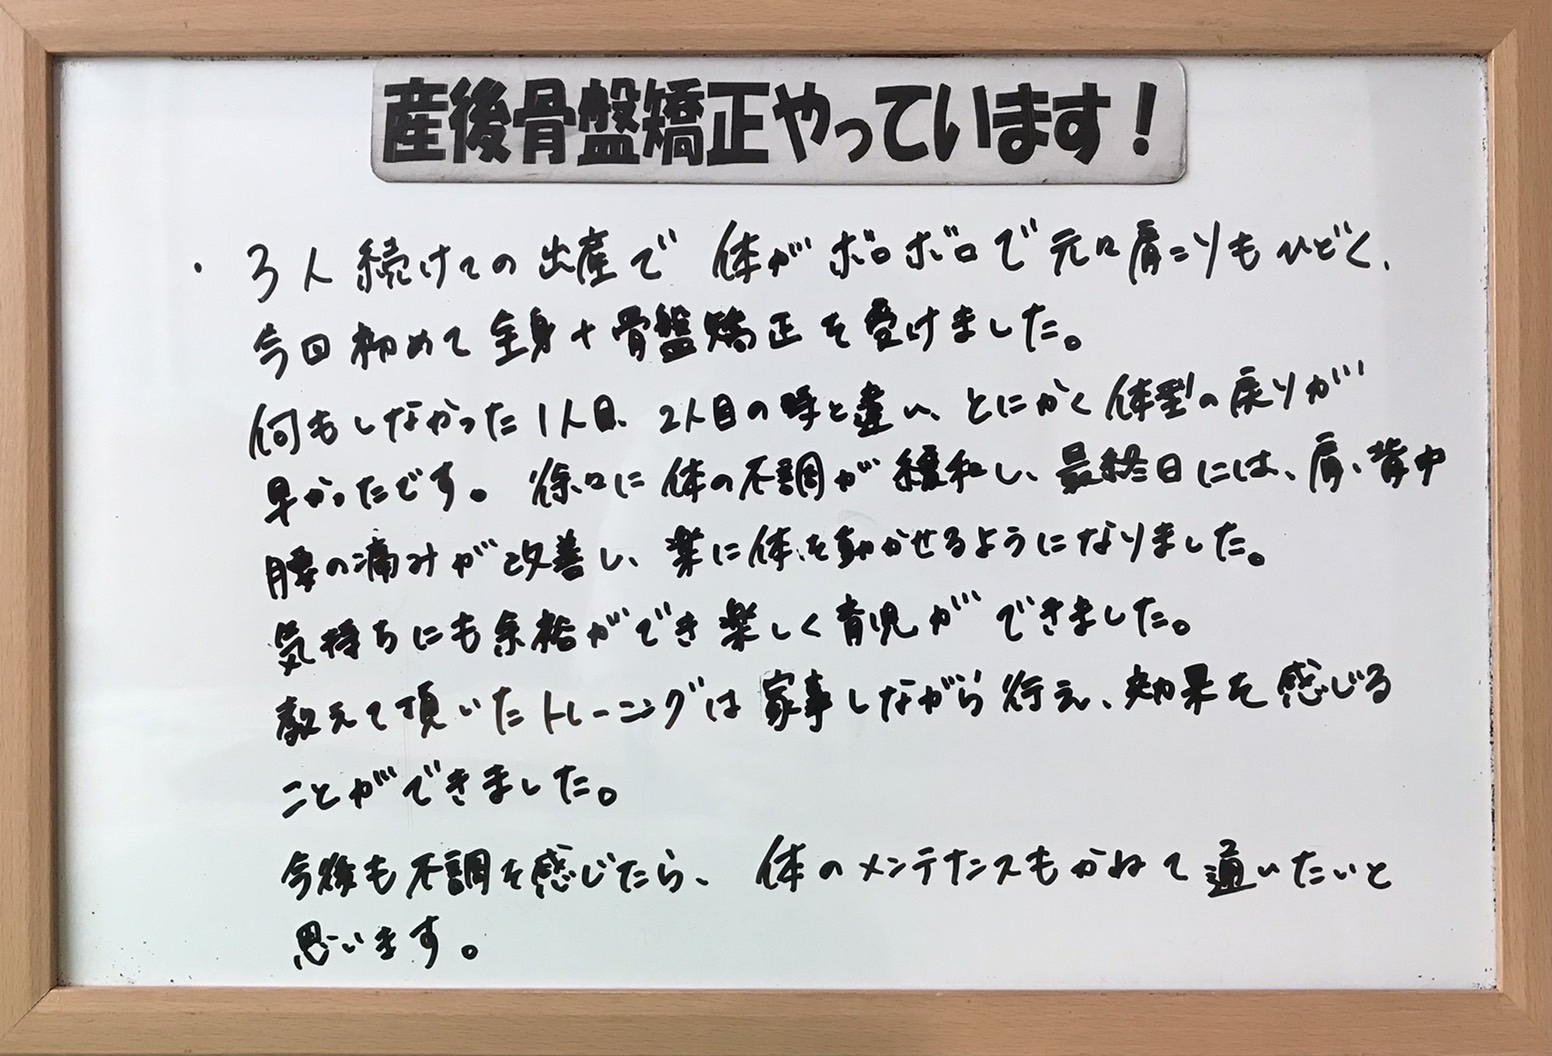 産後骨盤矯正やっています!
・3人続けての出産で 体がボロボロで元々肩こりもひどく、
今回初めて全身+骨盤矯正を受けました。
何もしなかった1人目、2人目の時と違い、とにかく体型の戻りが
早かったです。徐々に体の不調が緩和し、最終日には、肩、背中
腰の痛みが改善し、楽に体を動かせるようになりました。
気持ちにも余裕ができ楽しく育児が できました。
教えて頂いたトレーニングは家事しながら行え、効果を感じる
ことができました。
今後も不調を感じたら、 体のメンテナンスもかねて通いたいと
思います。